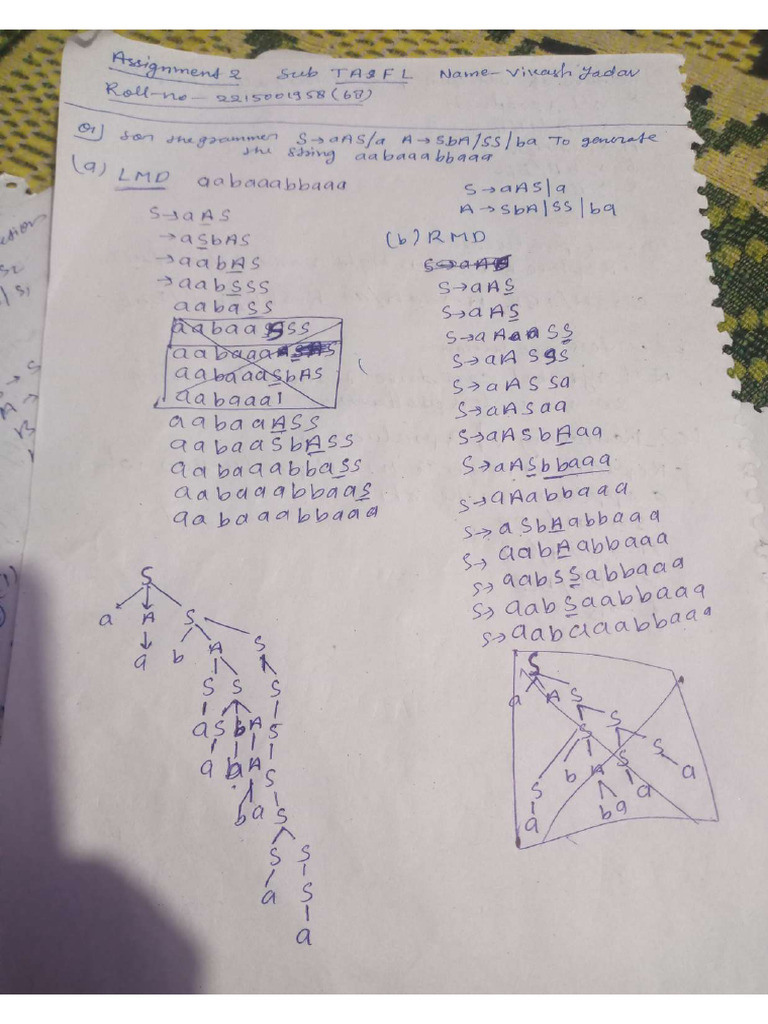 Assignment 2 Sub TAFL Name- Vikash Yadav
Roll-no - 2215001958(68)
Q1) for the grammer S→aAS/a A→SbA/SS/ba To generate
the string aabaaabbaaa
(a) LMD aabaaabbaaa
S→aAS
→aSbAS
→aabAS
→aabSSS
aabaSS
aabaaSSS
aabaaaSbAS
aabaaa
aabaaASS
aabaaSbASS
aabaaabbaSS
aabaaabbaaS
aabaaabbaaa
S→aAS|a
A→SbA|SS|ba
(b) RMD
S→aAS
S→aAS
S→aAaaSS
S→aASSS
S→aASSa
S→aASaa
S→aASbAaa
S→aASbbaaa
S→aAabbaaa
S→aSbAabbaaa
S→aabAabbaaa
S→aabSSabbaaa
S→aabSaabbaaa
S→aabaaabbaaa
S
a A S
a b A S
S S S
a S b A S
a b A S
b a S
S S
a S
a
S
a A S
S S
S b A S a
a b a a